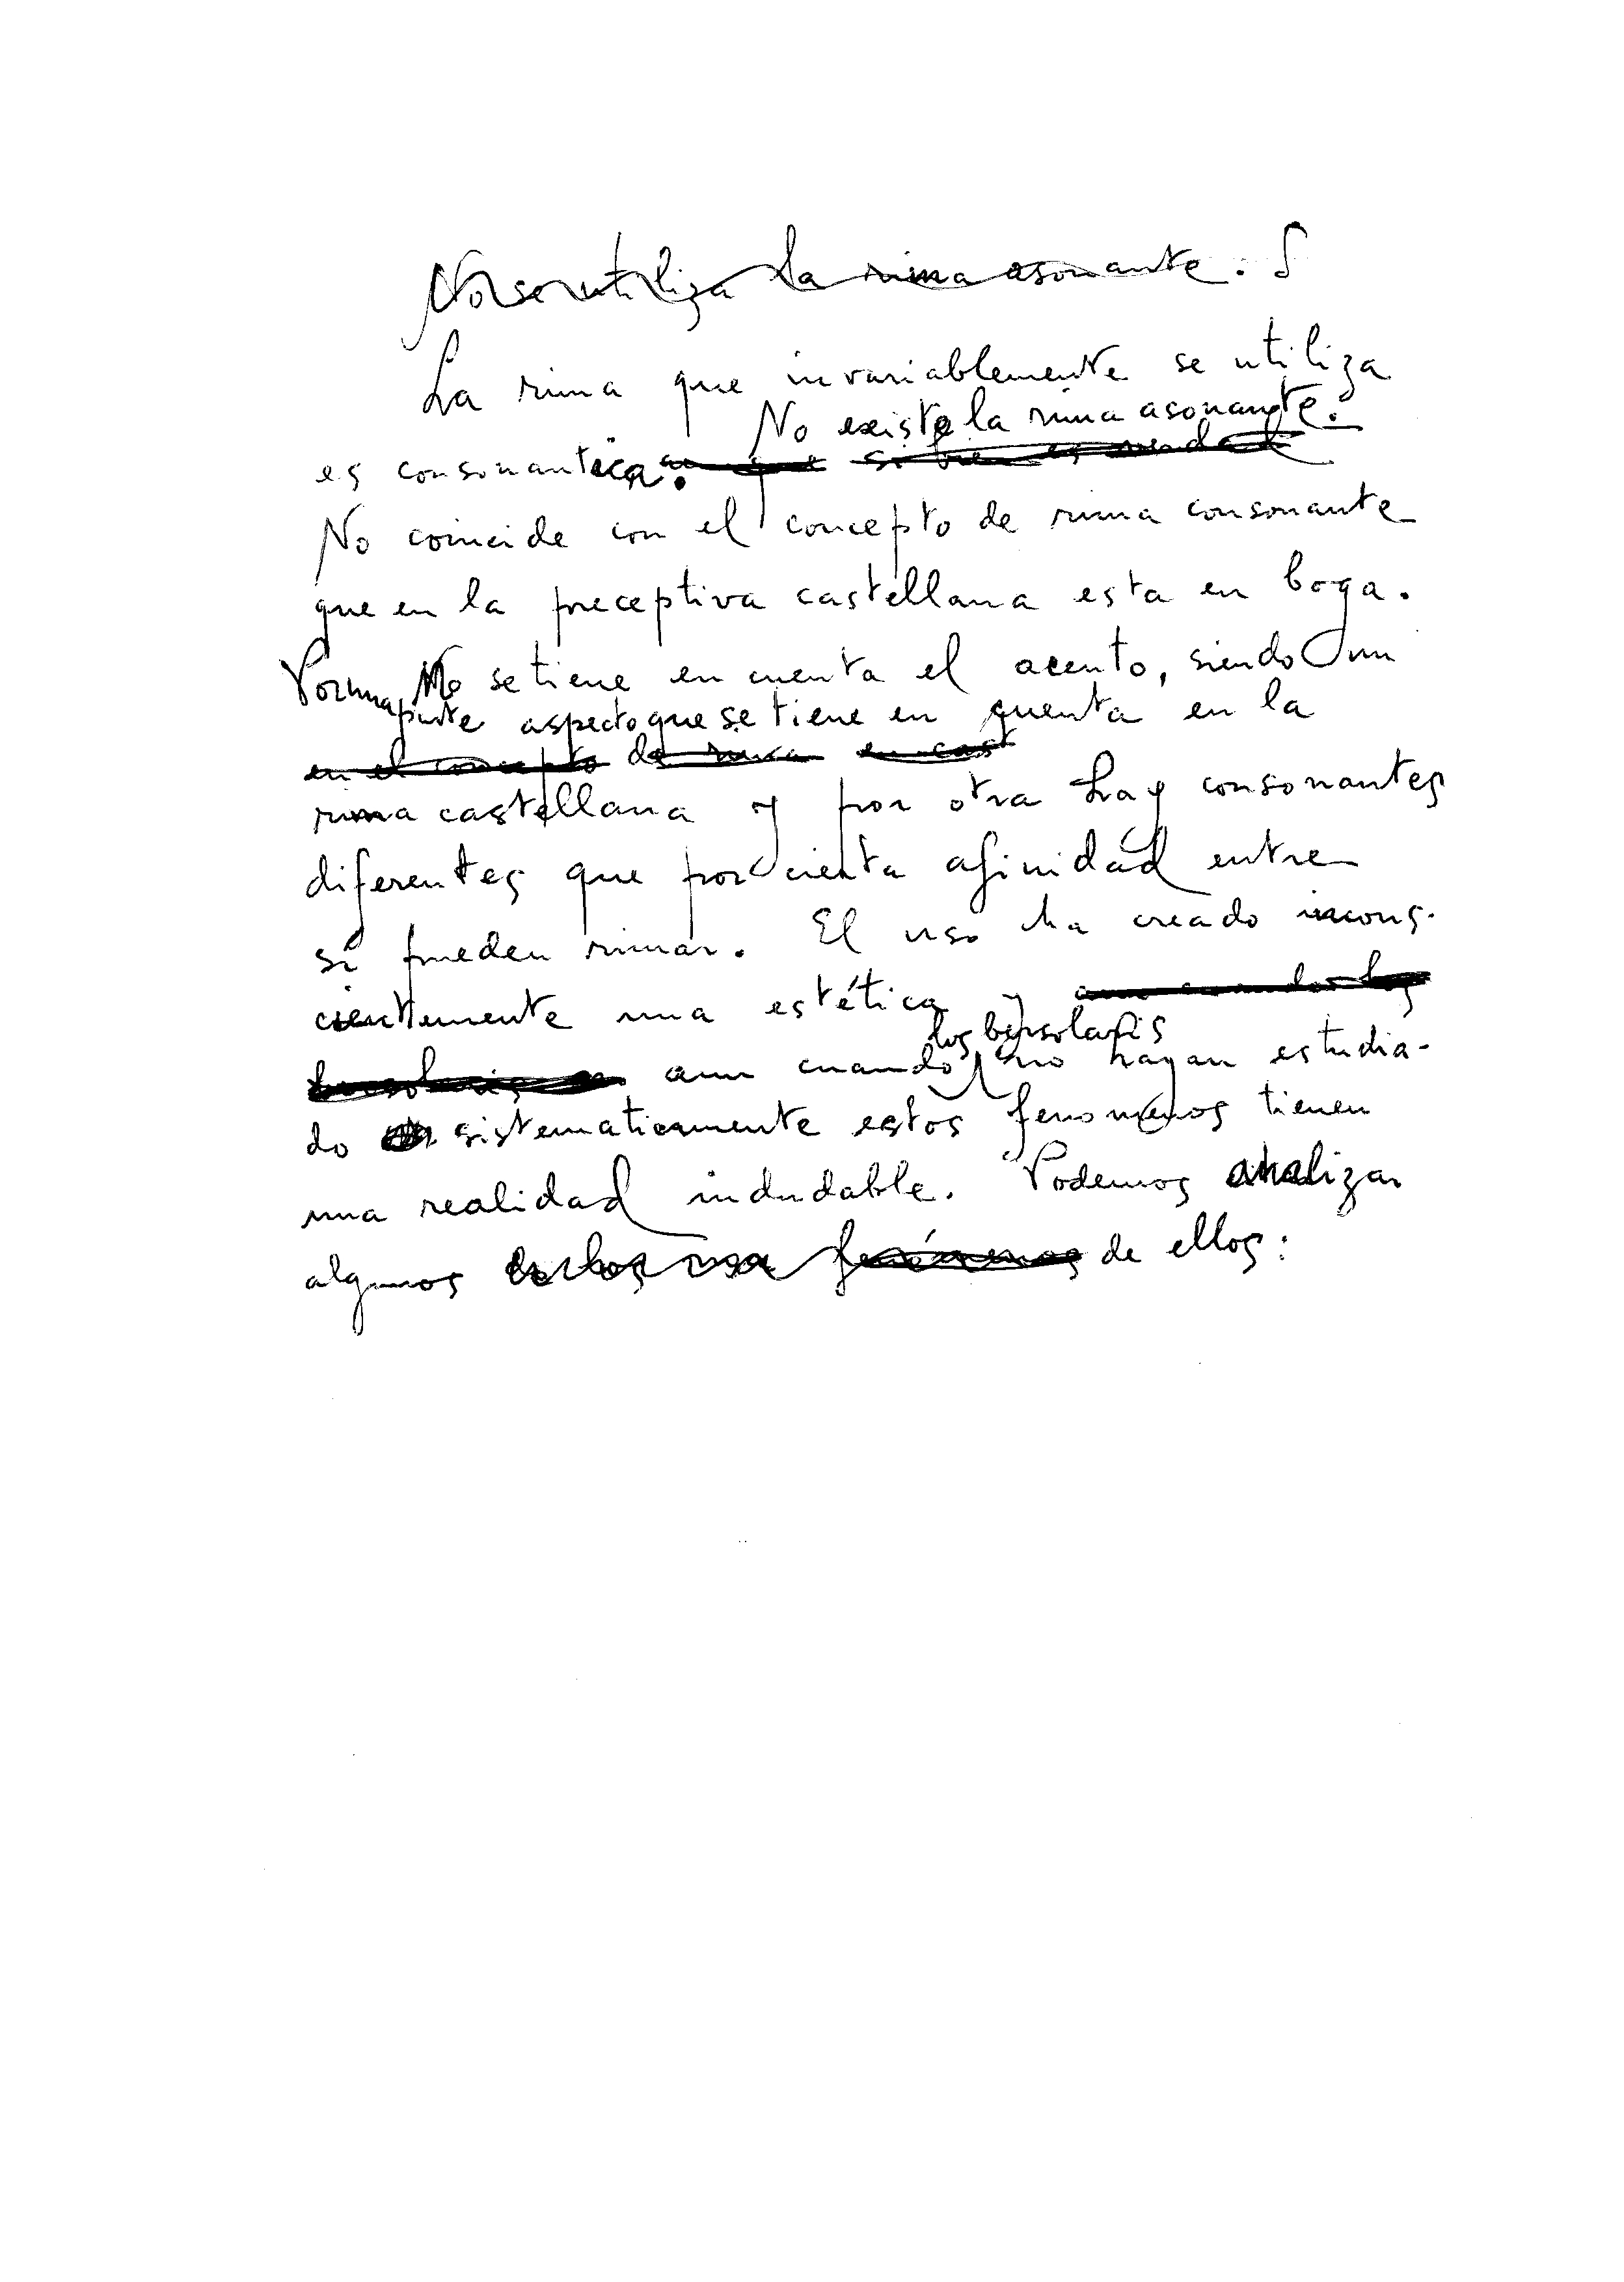 No se utiliza la rima asonante. S
La rima que invariablemente se utiliza
No existe la rima asonante.
es consonantica. que si bien es verdad
No coincide con el concepto de rima consonante
que en la preceptiva castellana esta en boga.
Por una No se tiene en cuenta el acento, siendo un
parte aspecto que se tiene en cuenta en la
en el concepto de rima en cast
rima castellana y por otra hay consonantes
diferentes que por cierta afinidad entre
sí pueden rimar. El uso ha creado incons-
cientemente una estética y aun cuando los
los bersolaris
bersolaris aun cuando no hayan estudia-
do sistematicamente estos fenomenos tienen
una realidad indudable. Podemos analizar
algunos de los fenómenos de ellos: